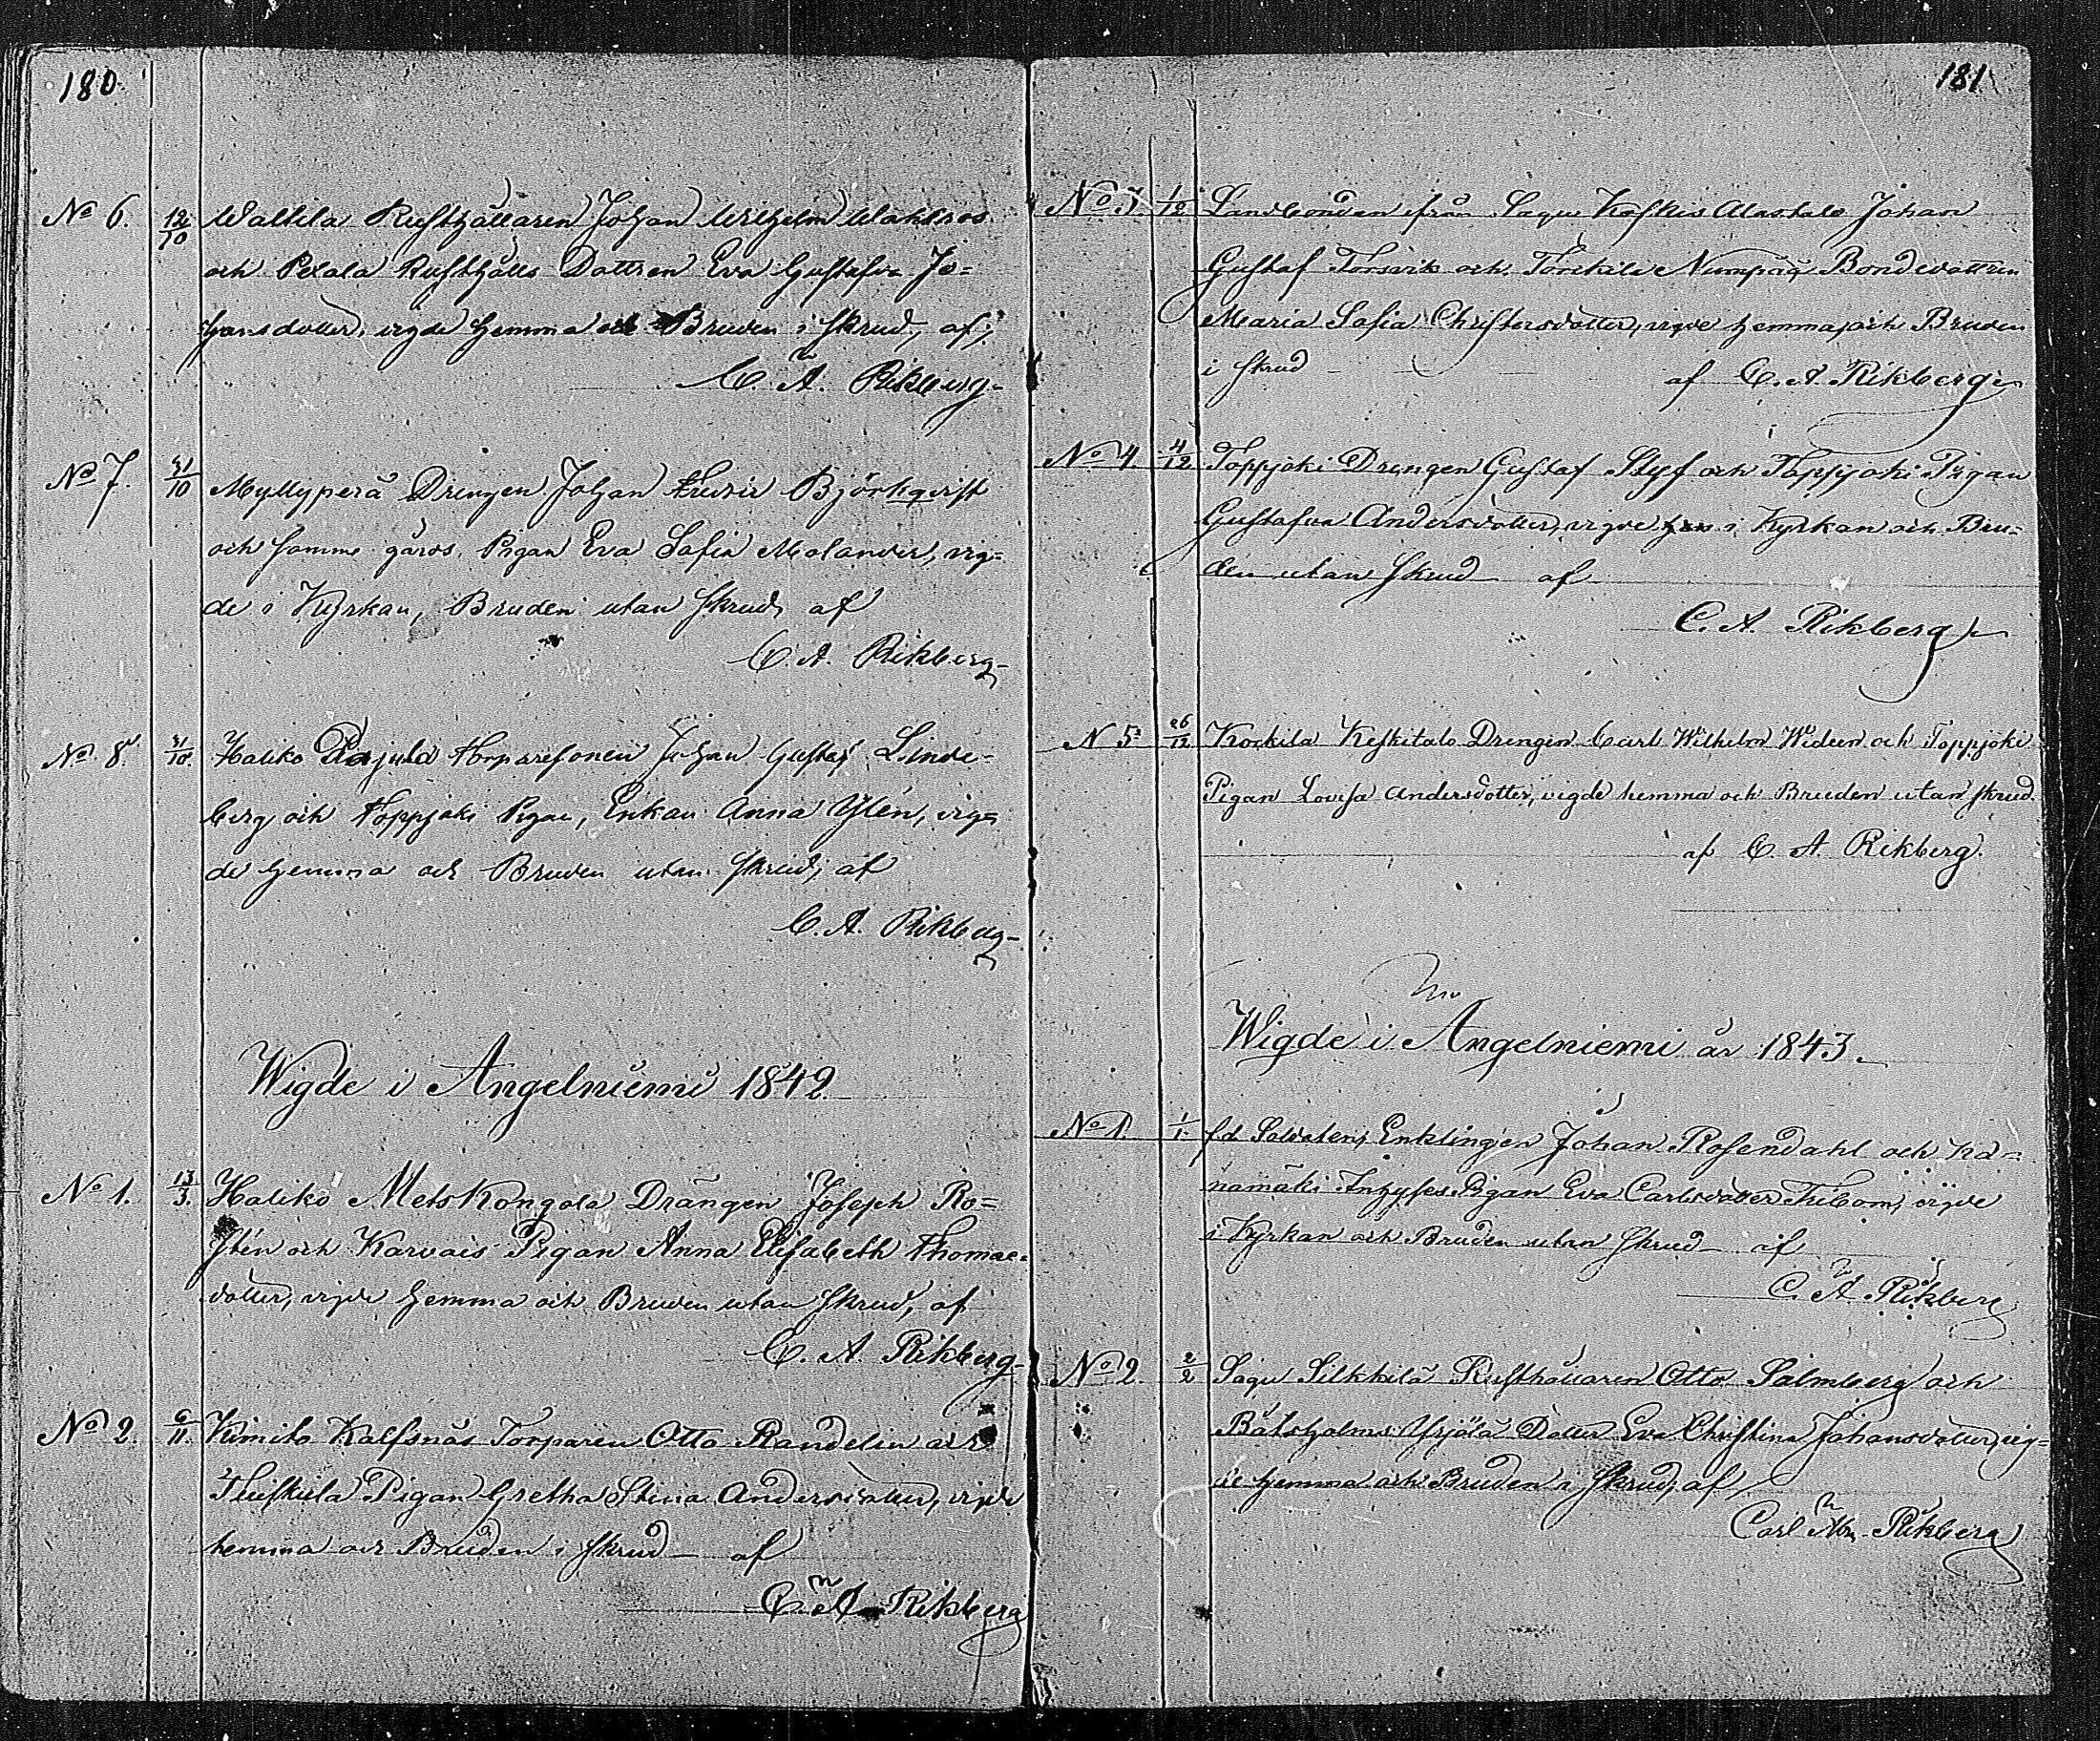 180
No 6. 12/10 Wallila Rusthållaren Johan Wilhelm Waktros
och Pexala Rusthålls Dottren Eva Gustafva Jo=
hansdotter, vigde hemma och Bruden i skrud, af
C. A. Rikberg
No 7. 31/10 Myllyperä Drengen Johan Fredric Björkqvist
och samme gårds Pigan Eva Sofia Melander, vig=
de i Kyrkan, Bruden utan skrud, af
C. A. Rikberg
No 8. 31/10 Haliko Pajula Torparesonen Johan Gustaf Linde=
berg och Toppjoki Pigan, Enkan Anna Ylén, vig=
de hemma och Bruden utan skrud, af
C. A. Rikberg
Wigde i Angelniemi 1842
No 1. 13/3. Haliko Metskongola Drängen Joseph Ro=
stén och Karvais Pigan Anna Elisabeth Thomae
dotter, vigde hemma och Bruden utan skrud, af
C. A. Rikberg
No 2. 6/11. Kimito Kalfsnäs Torparen Otto Randelin och
Pigan Gretha Stina Andersdotter, vigde
hemma och Bruden i skrud af
C. A. Rikberg
181
No 3. 1/12 Landbonden ifrån Sagu Koskis Alastalo Johan
Gustaf Torsvik och Torkkila Numpää Bondedottren
Maria Sofia Christersdotter, vigde hemma, och Bruden
i skrud af C. A. Rikberg
No 4 4/12 Toppjoki Drengen Gustaf Styf och Toppjoki Pigan
Gustafva Andersdotter, vigde i Kyrkan och Bru=
den utan skrud af
C. A. Rikberg
N 5 26/12 Kockila Keskitalo Drengen Carl Wilhelm Wideen och Toppjoki
Pigan Lovisa Andersdotter, vigde hemma och Bruden utan skrud.
af C. A. Rikberg.
Wigde i Angelniemi år 1843.
No 1. 1/1. f.d. Soldaten, Enklingen Johan Rosendahl och Kä=
namäki Inhyses Pigan Eva Carlsdotter Tribom, vigde
i Kyrkan och Bruden utan skrud af
C. A. Rikberg
No 2. 2/2 Sagu Silkkilä Rusthållaren Otto Salmberg och
Båtsholms Yrjölä Dotter Eva Christina Johansdotter, vig=
de hemma och Bruden i skrud, af
Carl Abr. Rikberg